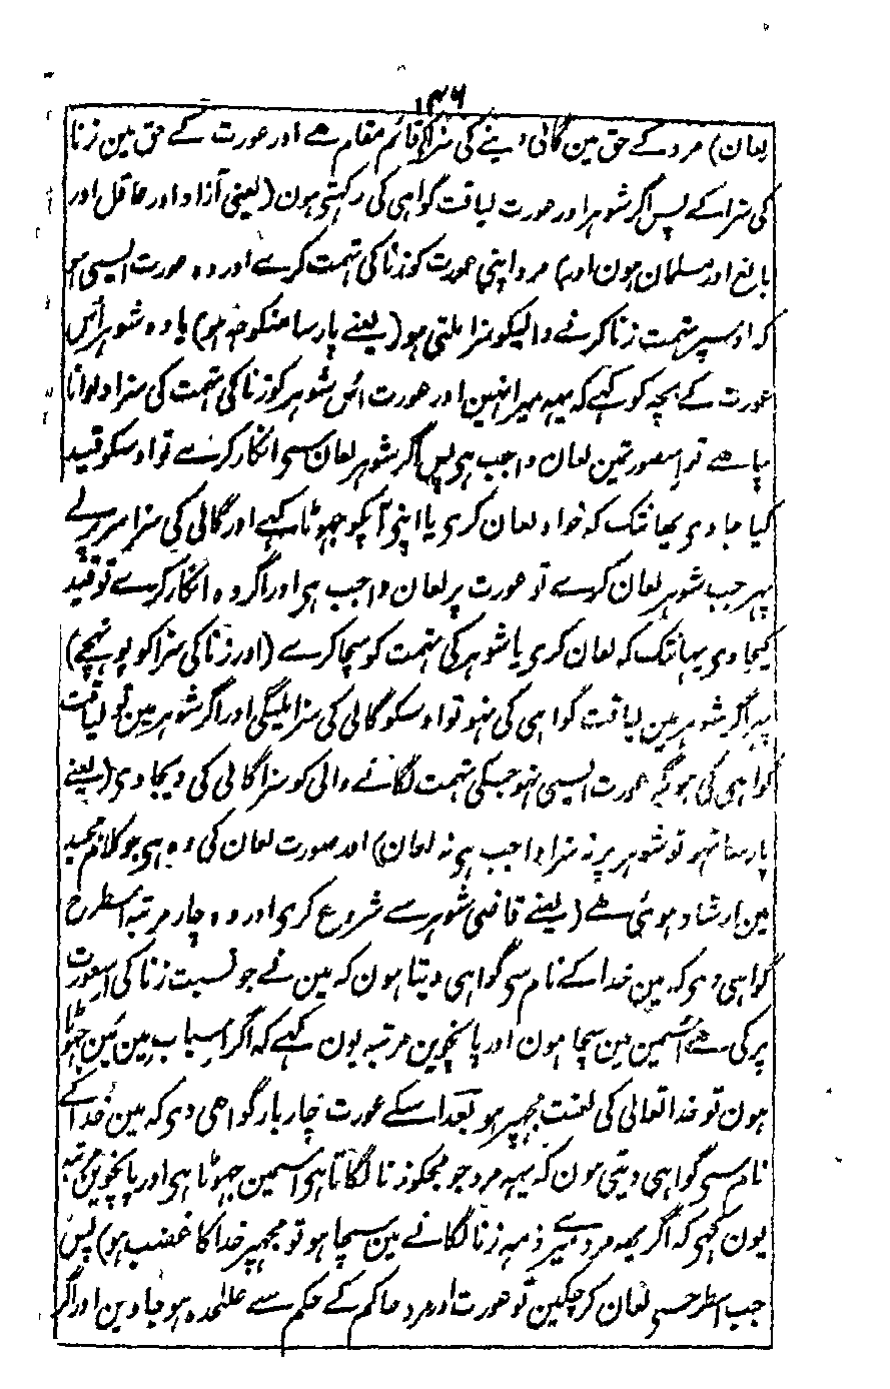 ۱۳۶
لعان) مرد کے حق مین گالی دینے کی سزا کی قائم مقام ہے اور عورت کے حق مین زنا
کی سزا کے پس اگر شوہر اور عورت لیاقت گواہی کی رکہتی ہون (یعنی آزاد اور عاقل اور
بالغ اور مسلمان ہون اور) مرد اپنی عورت کو زنا کی تہمت کرے اور وہ عورت ایسی ہو
کہ اوسپر تہمت زنا کرنے والیکو سزا ملتی ہو (یعنے پارسا منکوحہ ہو) یا وہ شوہر اس
عورت کے بچہ کو کہے کہ یہہ میرا نہین اور عورت اس شوہر کو زنا کی تہمت کی سزا دلوانا
چاہے تو اسصورتین لعان واجب ہی پس اگر شوہر لعان سی انکار کرے تو اوسکو قید
کیا جاوی یہانتک کہ خواہ لعان کری یا اپنی آپکو جہوٹا کہے اور گالی کی سزا سر پر لے
پہر جب شوہر لعان کرے تو عورت پر لعان واجب ہی اور اگر وہ انکار کرے تو قید
کیجاوی یہانتک کہ لعان کری یا شوہر کی تہمت کو سچا کرے (اور زنا کی سزا کو پہونچے)
پہر اگر شوہر مین لیاقت گواہی کی نہو تو اوسکو گالی کی سزا ملیگی اور اگر شوہر مین تو لیاقت
گواہی کی ہو مگر عورت ایسی نہو جسکی تہمت لگانے والی کو سزا گالی کی دیجاوی (یعنے
پارسا نہو تو شوہر پر نہ سزا واجب ہی نہ لعان) اور صورت لعان کی وہ ہی جو کلام مجید
مین ارشاد ہوئی ہے (یعنے قاضی شوہر سے شروع کری اور وہ چار مرتبہ اسطرح
گواہی دی کہ مین خدا کے نام سی گواہی دیتا ہون کہ مین نے جو نسبت زنا کی اس عورت
پر کی ہے اسمین مین سچا ہون اور پانچوین مرتبہ یون کہے کہ اگر اسباب مین مین جہوٹا
ہون تو خدا تعالی کی لعنت مجہپر ہو بعد اسکے عورت چار بار گواہی دی کہ مین خدا کے
نام سی گواہی دیتی ہون کہ یہہ مرد جو مجکو زنا لگاتا ہی اسمین جہوٹا ہی اور پانچوین مرتبہ
یون کہی کہ اگر یہہ مرد میرے ذمہ زنا لگانے مین سچا ہو تو مجہپر خدا کا غضب ہو) پس
جب اسطرحسی لعان کرچکین تو عورت اور مرد حاکم کے حکم سے علٰحدہ ہوجاوین اور اگر